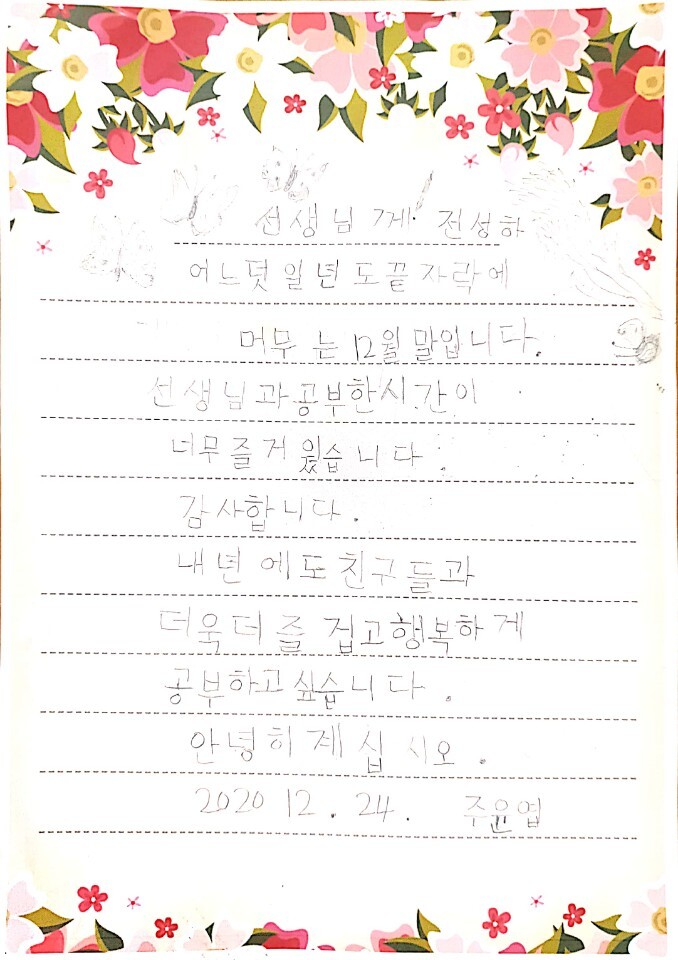 선생님께! 전성하
어느덧 일 년도 끝자락에
머무는 12월 말입니다.
선생님과 공부한 시간이
너무 즐거웠습니다.
감사합니다.
내년에도 친구들과
더욱더 즐겁고 행복하게
공부하고 싶습니다.
안녕히 계십시오.
2020 12. 24. 주윤엽